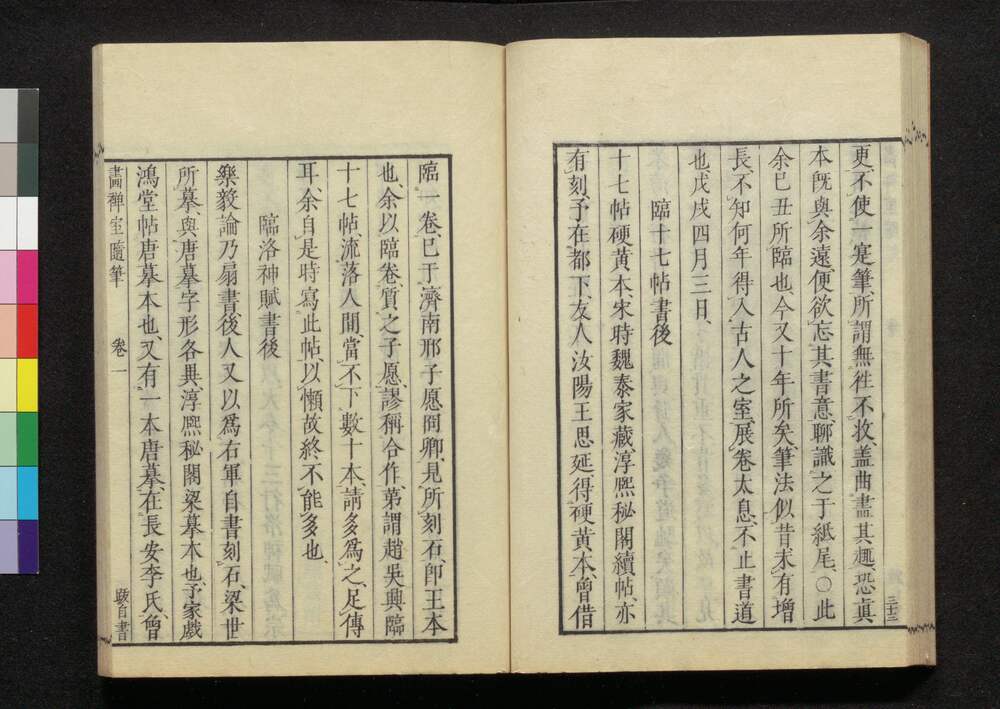 更、不使一寔筆、所謂無徃不收、盖曲盡其趣、恐眞
本既與余遠、便欲忘其書意聊識之于紙尾、○此
余己丑所臨也、今又十年所矣、筆法似昔未有增
長、不知何年得入古人之室、展卷太息、不止書道
也、戊戌四月三日、
臨十七帖書後
十七帖硬黃本、宋時魏泰家藏、淳熈秘閣續帖、亦
有刻、予在都下、友人汝陽王思延得硬黃本、曾借
三十三
臨一卷、已于濟南邢子愿冏卿、見所刻石、卽王本
也、余以臨卷質之子愿、謬稱合作、第謂趙吳興臨
十七帖、流落人間、當不下數十本、請多爲之、足傳
耳、余自是時寫此帖、以懶故終不能多也、
臨洛神賦書後
樂毅論乃扇書、後人又以爲右軍自書刻石、梁世
所摹、與唐摹字形各異、淳熈秘閣梁摹本也、予家戯
鴻堂帖唐摹本也、又有一本唐摹、在長安李氏、曾
畫禅室隨筆 卷一
跋自書